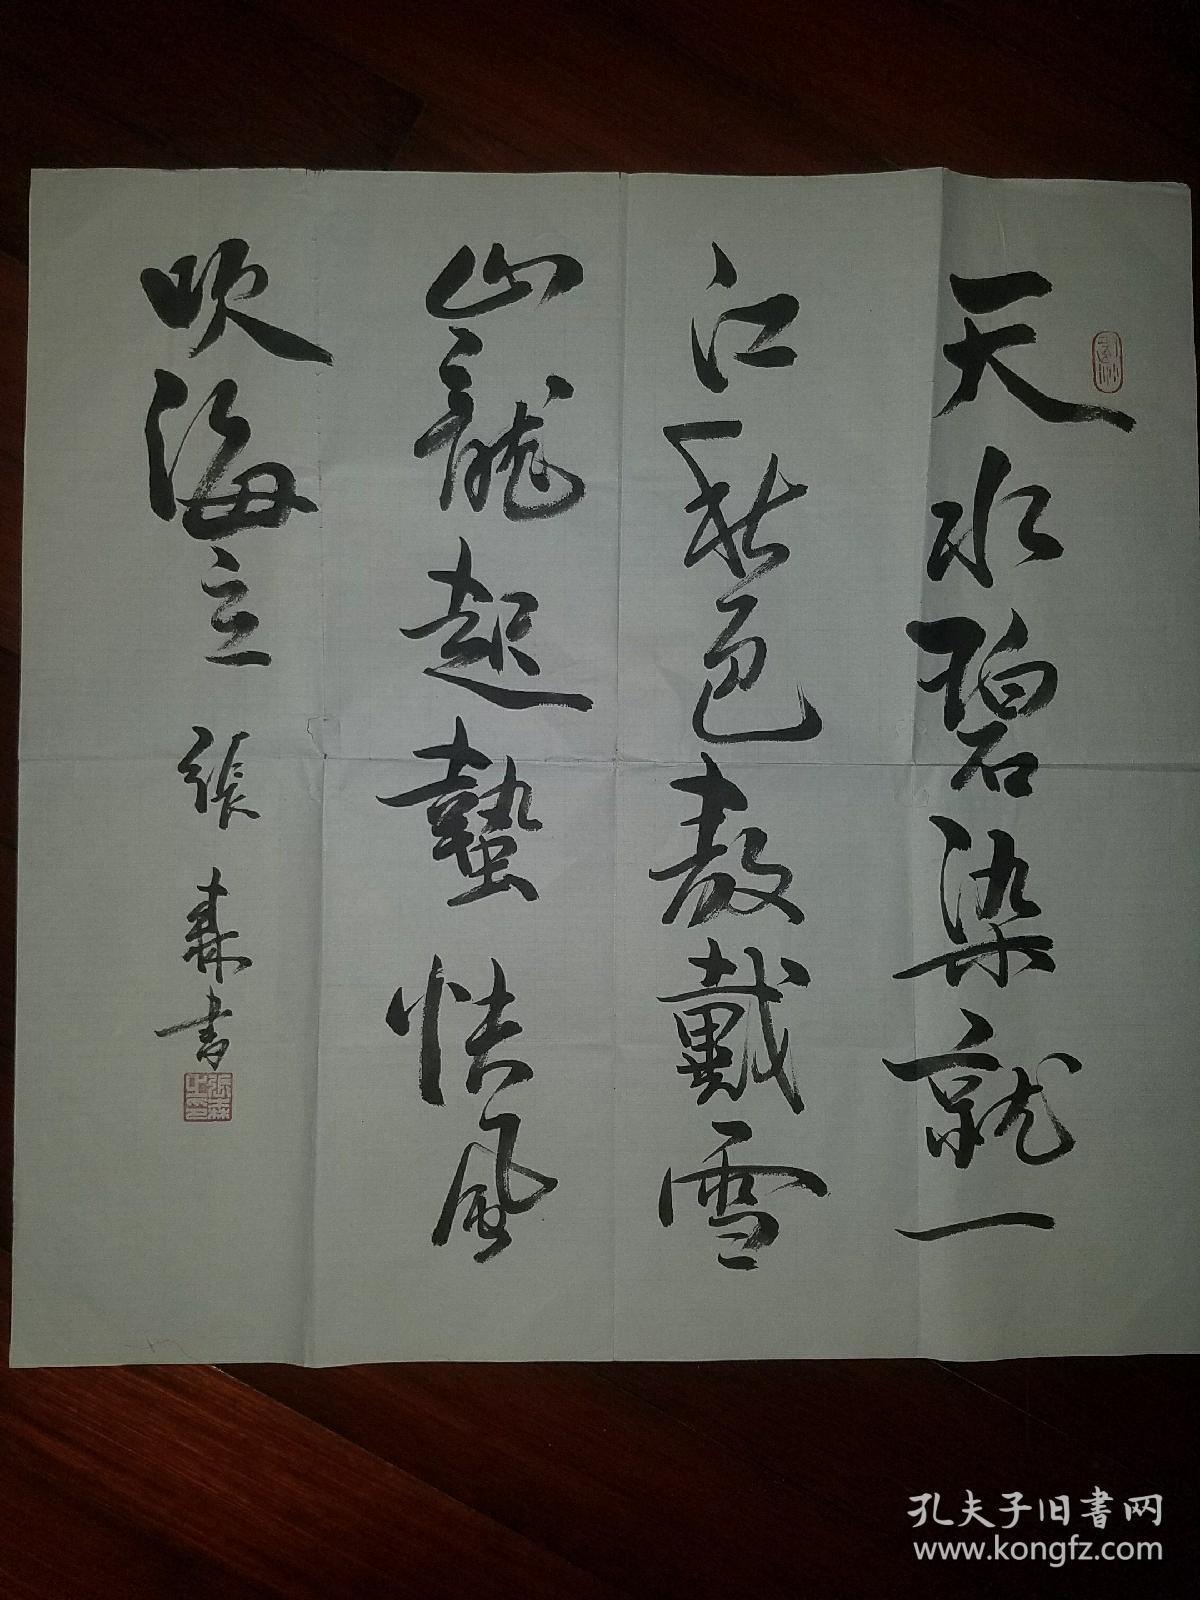 天水碧染就一
江秋色敖戴雪
山龍起蟄怯風
吹海立
張森書
張森之印
孔夫子旧書网
www.kongfz.com